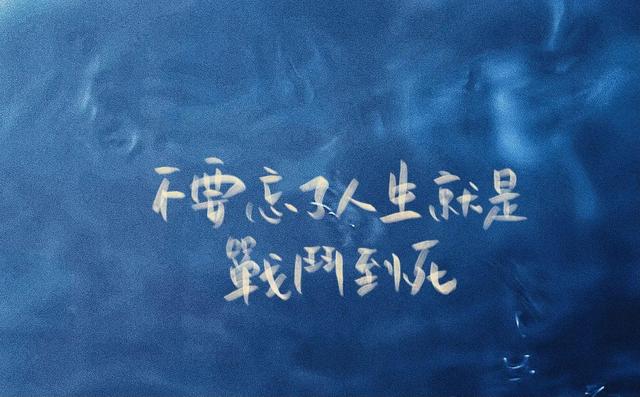 不要忘了人生就是
戰鬥到死